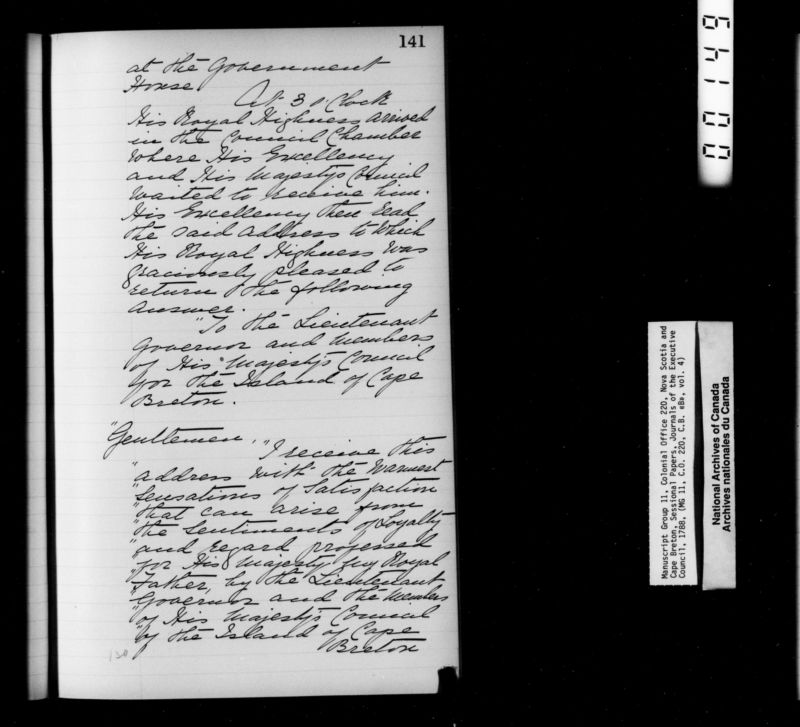 141
at the Government
House
At 3 o'Clock
His Royal Highness arrived
in the Council Chamber
where His Excellency
and His Majestys Council
waited to receive him.
His Excellency then read
the said address to which
His Royal Highness was
graciously pleased to
return the following
answer.
"To the Lieutenant
Governor and Members
of His Majestys Council
for the Island of Cape
Breton.
"Gentlemen,
"I receive this
"address with the warmest
"sensations of satisfaction
"that can arise from
"the sentiments of Loyalty
"and regard professed
"for His Majesty my Royal
"Father, by the Lieutenant
"Governor and the Members
"of His Majestys Council
"of the Island of Cape
Breton
130
00149
Manuscript Group 11, Colonial Office 220, Nova Scotia and
Cape Breton, Sessional Papers, Journals of the Executive
Council, 1788, (MG 11, C.O. 220, C.B. «B», vol. 4)
National Archives of Canada
Archives nationales du Canada